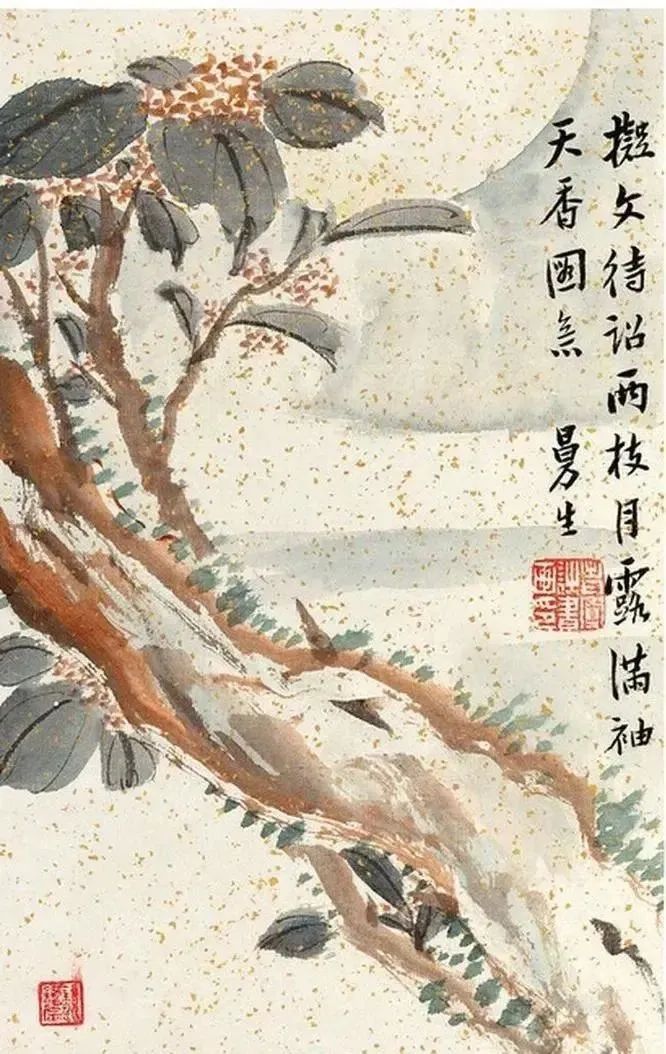 擬文待詔兩枝月露滿袖
天香圖意 曼生